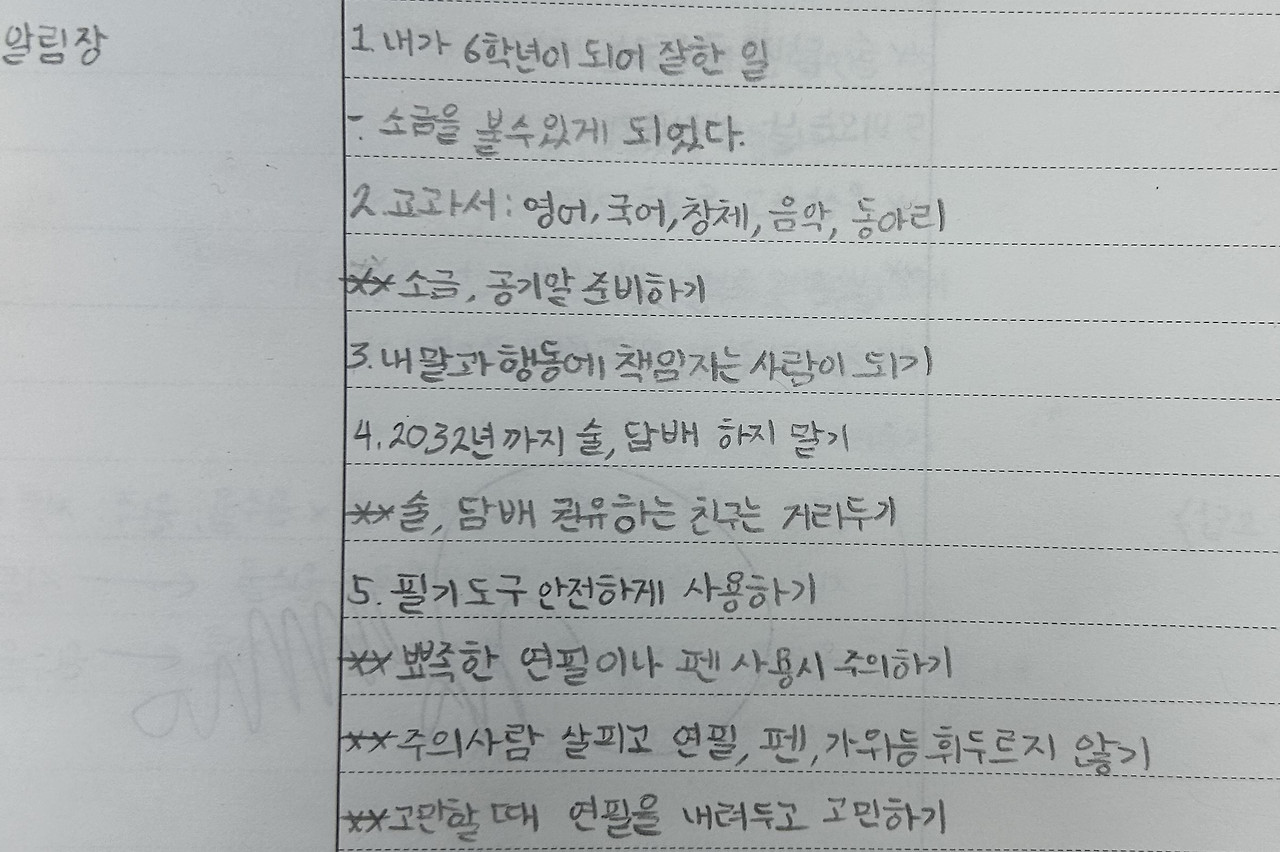 알림장
1. 내가 6학년이 되어 잘한 일
- 소금을 볼수있게 되었다.
2. 교과서: 영어, 국어, 창체, 음악, 동아리
** 소금, 공기알 준비하기
3. 내 말과 행동에 책임지는 사람이 되기
4. 2032년까지 술, 담배 하지 말기
** 술, 담배 권유하는 친구는 거리두기
5. 필기도구 안전하게 사용하기
** 뾰족한 연필이나 펜 사용시 주의하기
** 주의사람 살피고 연필, 펜, 가위등 휘두르지 않기
** 고민할 때 연필을 내려두고 고민하기